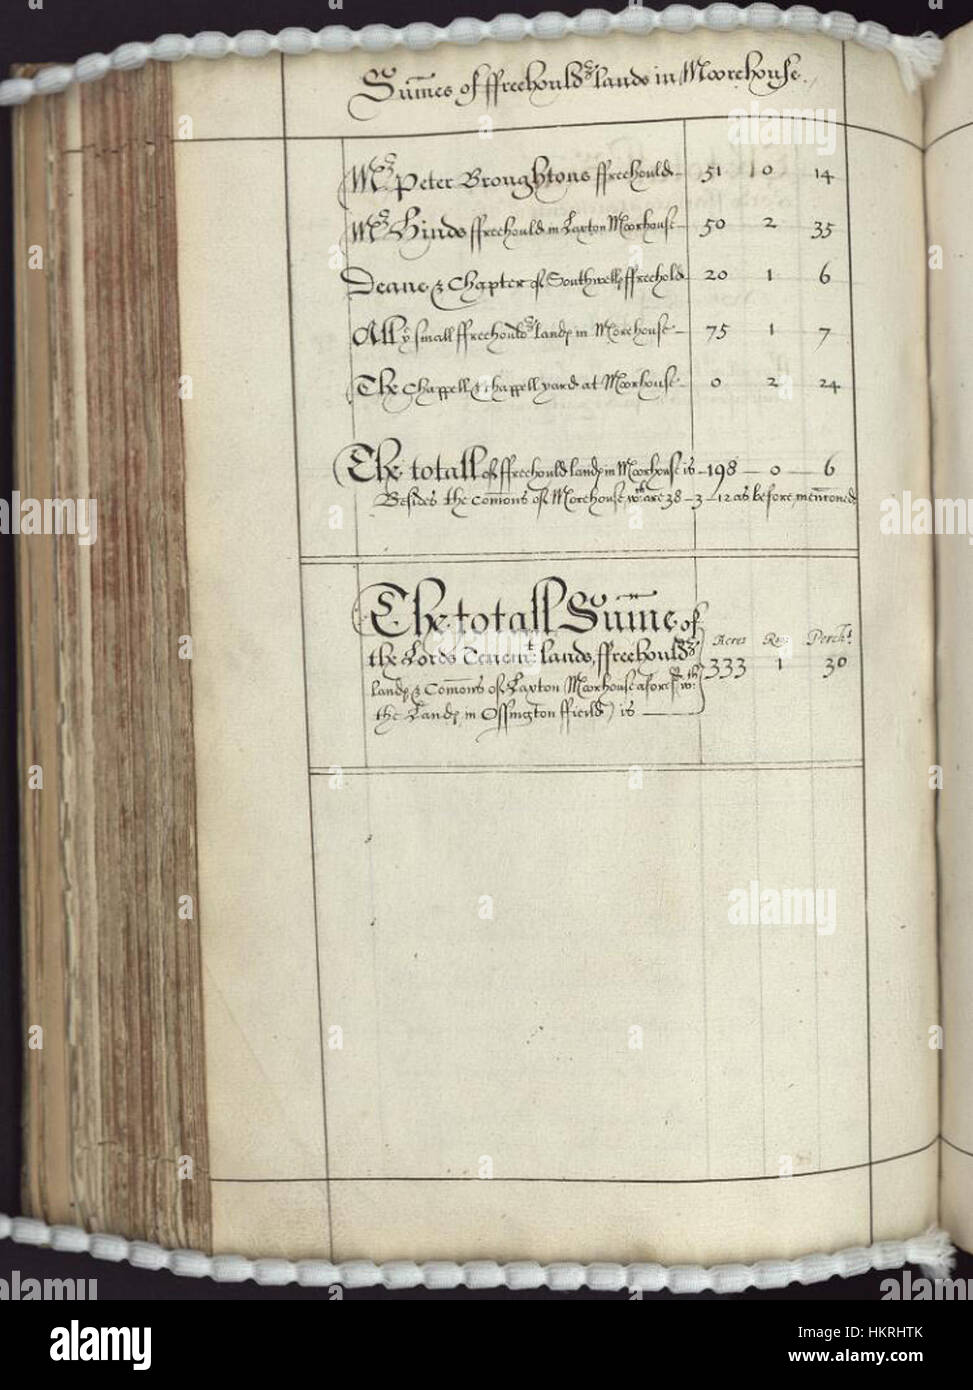 Sum̄es of ffreehould:rs lands in Moorehouse.
Mr: Peter Broughtons ffreehould 51 0 14
Mr: Hinds ffreehould in Laxton Moorhouse 50 2 35
Deane & Chapter of Southwell ffreehold 20 1 6
All ye small ffreehould:rs lands in Morehouse 75 1 7
The Chappell & chappell yard at Moorhouse 0 2 24
The totall of ffreehould lands in Moorhouse is 198 0 6
Besides the Com̄ons of Morehouse wch are 38 - 3 - 12 as before men̄c̄oned
The totall Sum̄e of
Acres Ro: Perch:s
the Lords Tenem:ts lands, ffreehould:rs 333 1 30
lands & Com̄ons of Laxton Moorhouse afores:d (wth:
the Lands in Ossington ffeild) is
alamy
Image ID: HKRHTK
www.alamy.com